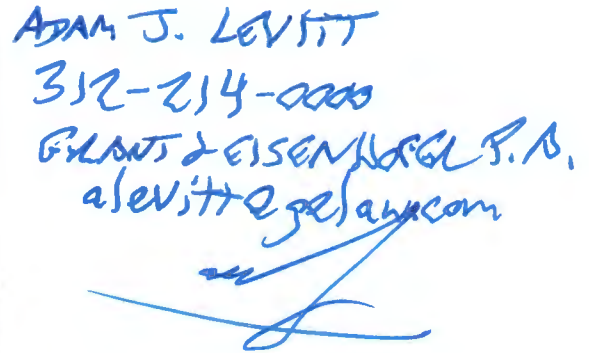 ADAM J. LEVITT
312-214-0000
GRANT & EISENHOFER P.A.
alevitt@gelaw.com